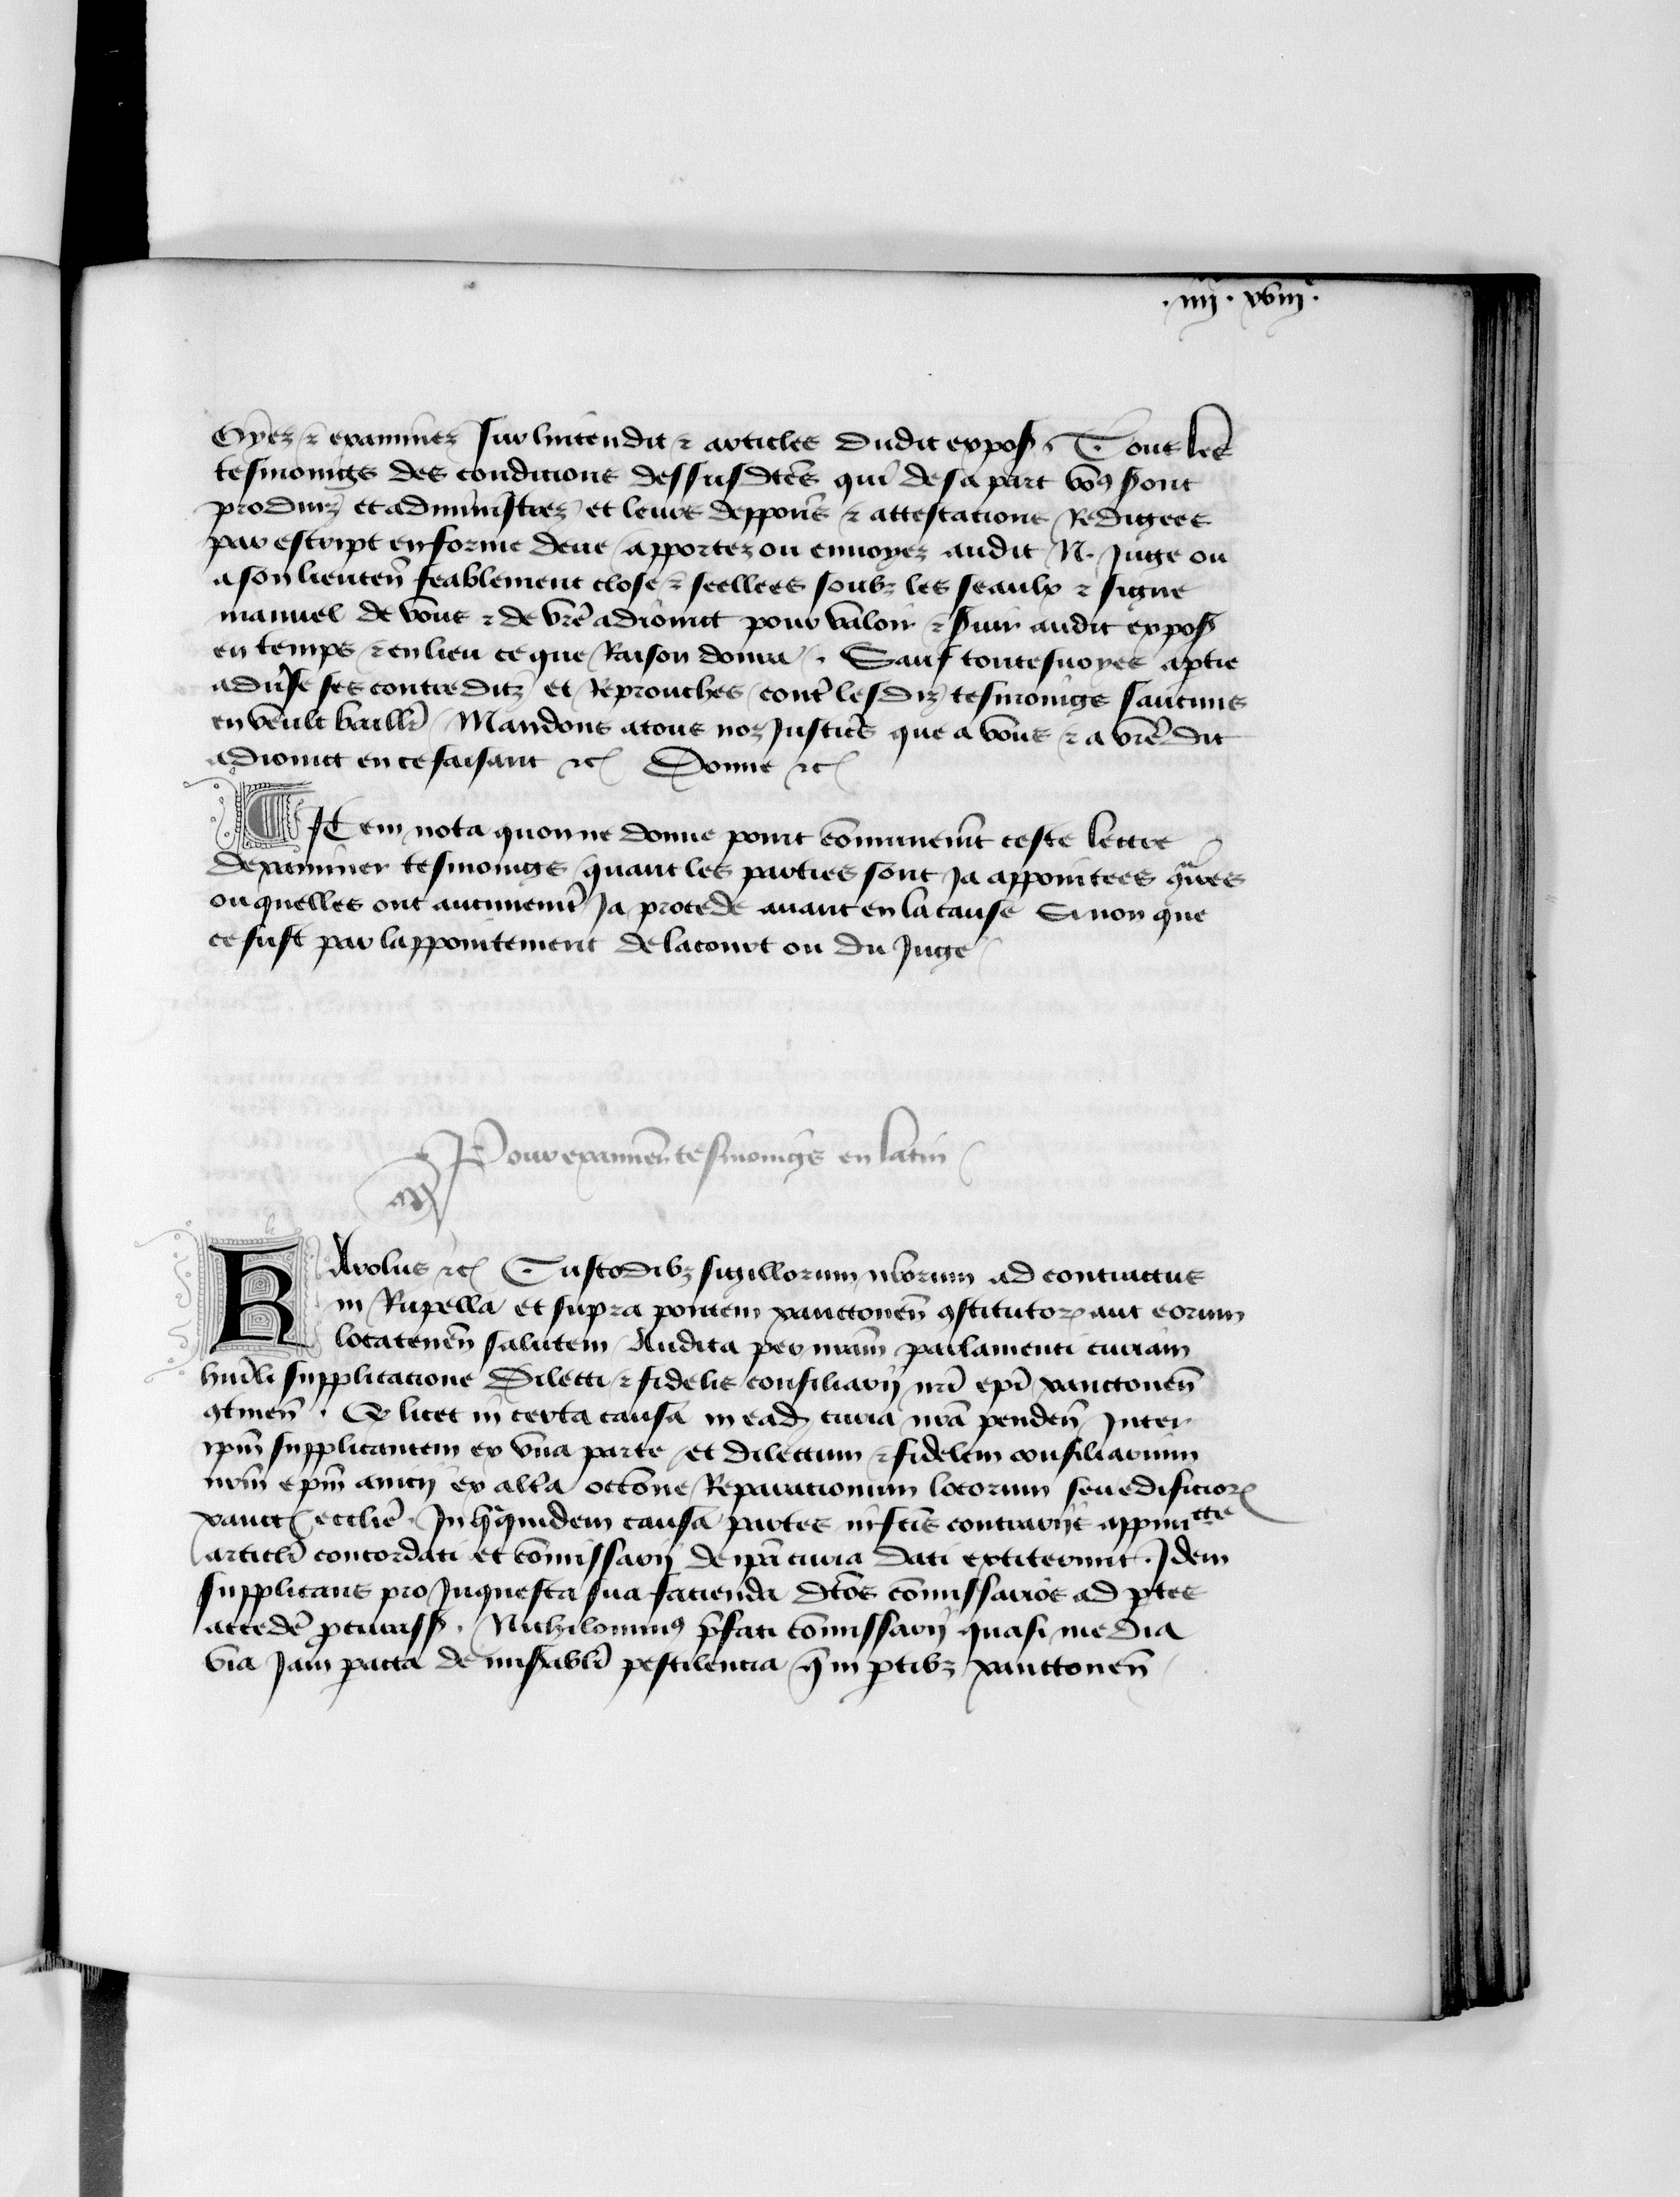 .iiii. xviii.
Oyez & examinez sur lintendit & articles dudit expos. Tous les
tesmoings des condicions dessusdtēs qui de sa part voꝰ sont
produiz et administrez et leurs depposic̄ & attestacions redigees
par escript en forme deue apportez ou envoyez audit N. Juge ou
a son lieuten̄ feablement closes & seellees soubz les seaulx & signe
manuel de vous & de vrē adioinct pour valoir & suir audit expos
en temps & en lieu ce que Raison donra. Sauf toutesuoyes a ptie
aduse ses contreditz et Reprouches contr̄ lesdiz tesmoings saucuns
en veult baillr̄ Mandons a tous noz Justicr̄s que a vous & a vrē dit
adioinct en ce faisant &c̄ Donne &c̄
Item nota quon ne donne point cōmunemt̄ ceste lettre
dexaminer tesmoings quant les parties sont ja appointees
ou quelles ont aucunemt̄ ja procede auant en la cause Si non que
ce fust par lappointement de la court ou du Juge
Pour examiner tesmoings en latin
KArolus &c̄ Custodibꝫ sigillorum nr̄orum ad contractus
in Rupella et supra pontem xanctonen̄ ꝯstitutoꝝ aut eorum
locatenen̄ salutem Audita per nr̄am parlamenti curiam
humili supplicatione Dilecti & fidelis consiliarij nr̄i ep̄i xanctonen̄
ꝯtinen̄. Qꝫ licet in certa causa in eadꝫ curia nr̄a penden̄ Inter
ip̄m supplicantem ex vna parte et dilectum & fidelem consiliarium
nr̄m ep̄m anicij ex altā occōne Reparacionum locorum seu edificioꝝ
xancton̄ ecclie. In hac quidem causa partes in fcis contrarijs appunctte
articl̄i concordati et cōmissarij de ip̄a curia dati extiterunt. Idem
supplicans pro Inquesta sua facienda dc̄os cōmissarios ad ꝑtes
accede ꝓcurass. Nichilominꝰ p̄fati cōmissarij quasi media
via Jam ꝑacta de miserabl̄i pestilencia q̄ in ꝑtibꝫ xanctonen̄